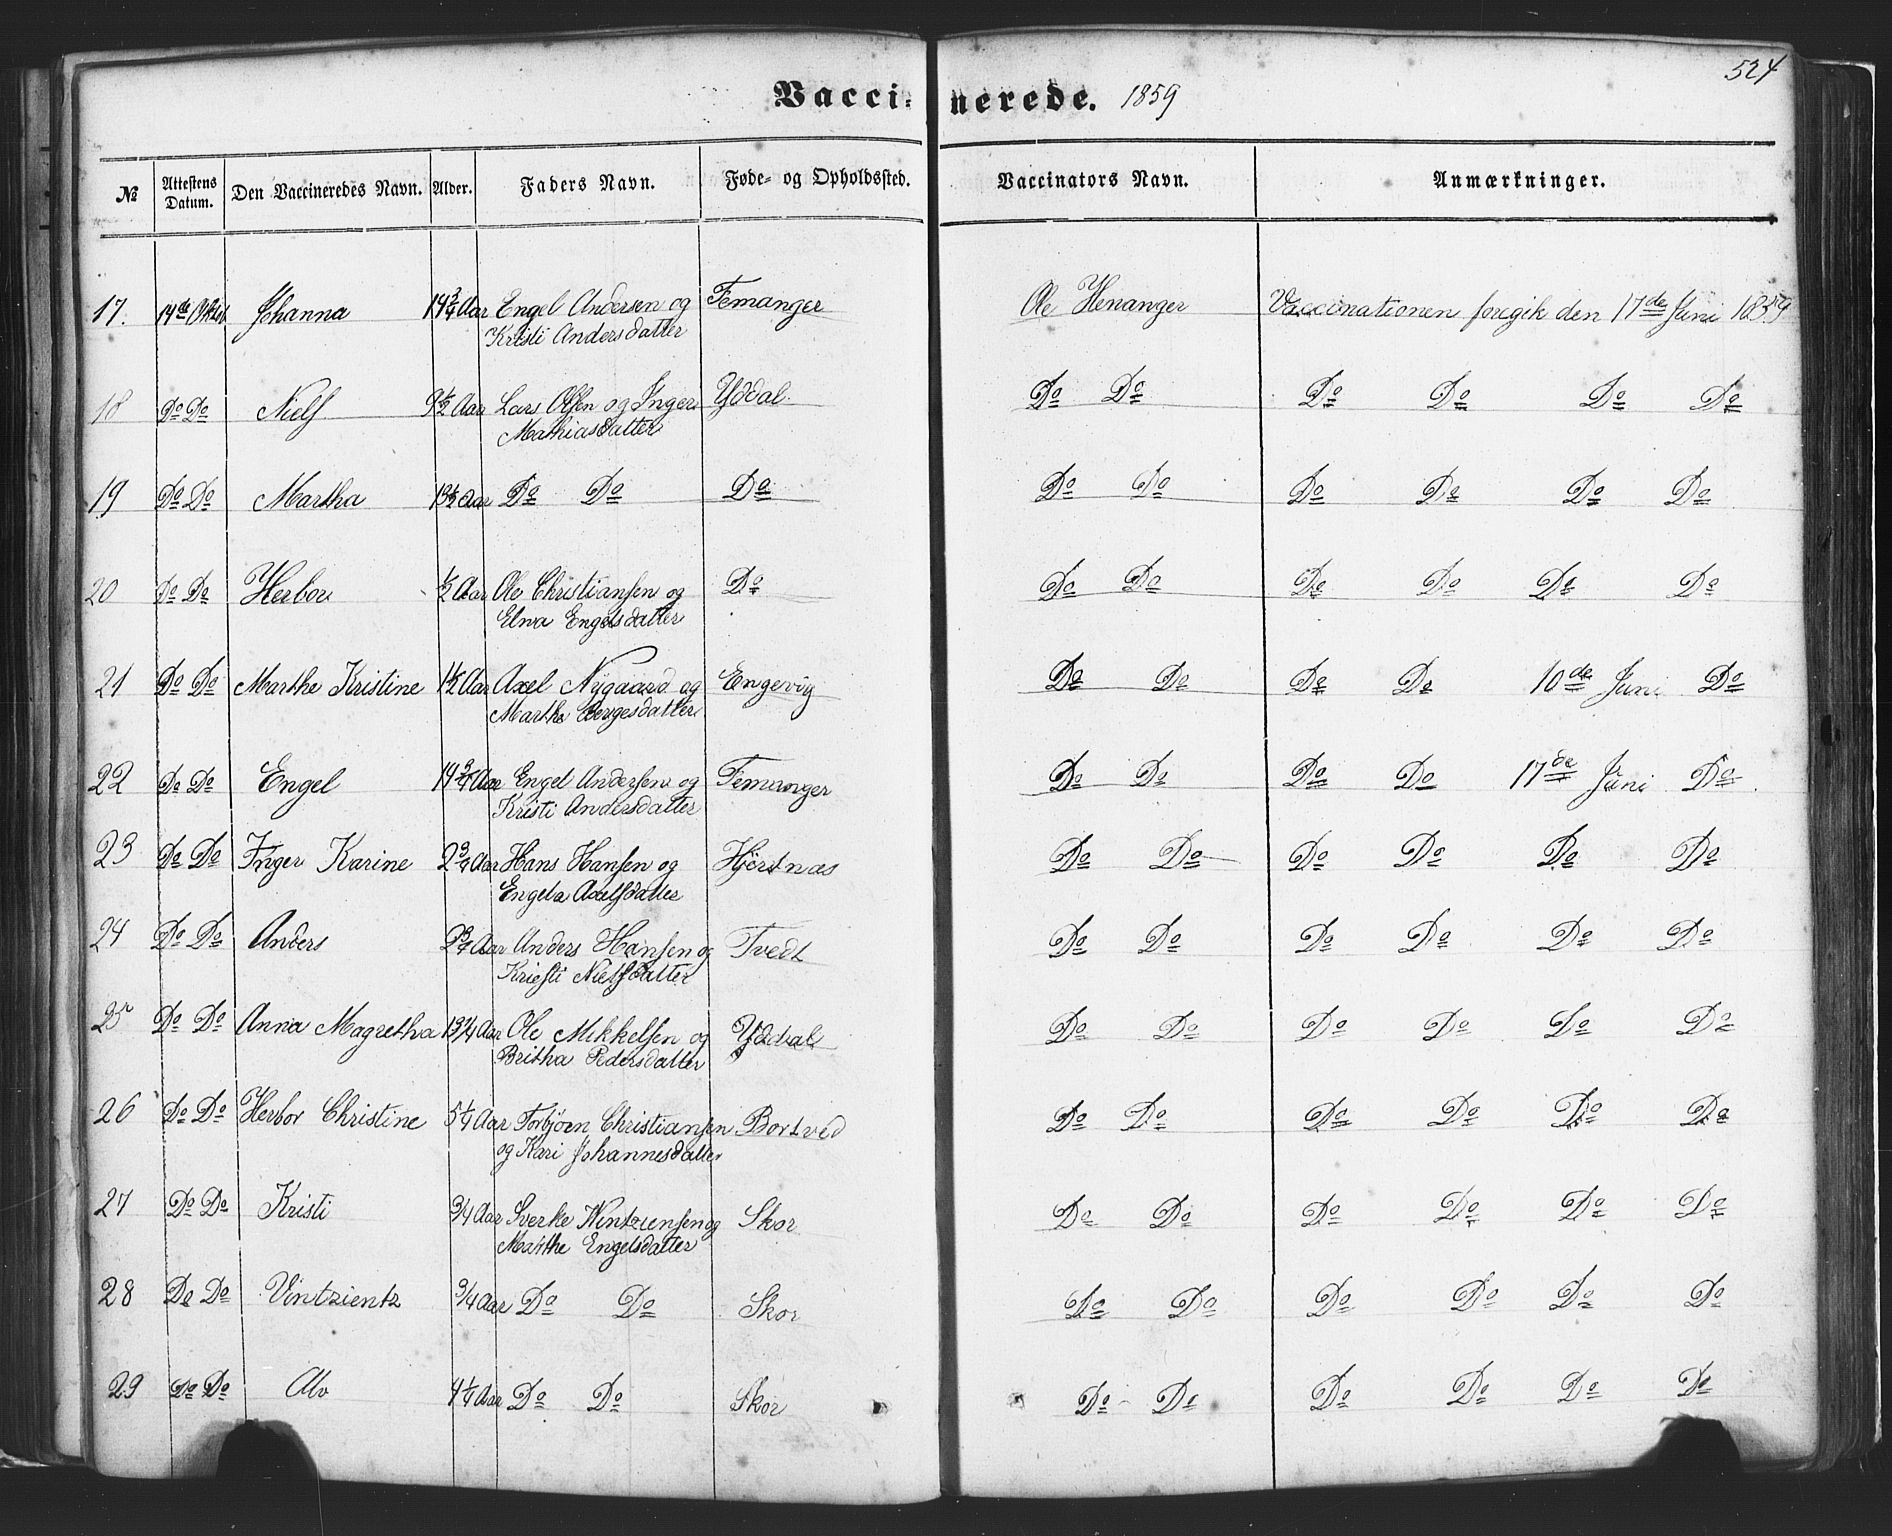 524
Vaccinerede. 1859
№ Attestens Datum. Den Vaccineredes Navn. Alder. Faders Navn. Føde- og Opholdssted. Vaccinators Navn. Anmærkninger.
17. 14de Johanna 14 3/4 Aar Engel Andersen og Femanger Ole Henanger Vaccinationen foregik den 17de Juni 1859
Kristi Andersdatter
18 Do Do Niels 9 1/2 Aar Lars Olsen og Inger Yddal Do Do Do Do Do Do
Mathiasdatter
19 Do Do Martha 13 1/2 Aar Do Do Do Do Do Do Do Do Do
20 Do Do Herbor 1/2 Aar Ole Christiansen og Do Do Do Do Do Do Do
Elna Engelsdatter
21 Do Do Marthe Kristine 1 1/2 Aar Axel Nygaard og Engevig Do Do Do Do 10de Juni Do
Marthe Bergesdatter
22 Do Do Engel 14 3/4 Aar Engel Andersen og Femanger Do Do Do Do 17de Juni Do
Kristi Andersdatter
23 Do Do Inger Karine 2 3/4 Aar Hans Hansen og Hjortnæs Do Do Do Do Do Do
Engela Axelsdatter
24 Do Do Anders 2 3/4 Aar Anders Hansen og Tvedt Do Do Do Do Do Do
Kriesti Nielsdatter
25 Do Do Anna Magretha 13 1/4 Aar Ole Mikkelsen og Yddal Do Do Do Do Do Do
Britha Pedersdatter
26 Do Do Herbor Christine 5 1/4 Aar Torbjøen Christiansen Bortved Do Do Do Do Do Do
og Kari Johannesdatter
27 Do Do Kristi 3/4 Aar Sverke og Skor Do Do Do Do Do Do
Marthe Engelsdatter
28 Do Do Vintzientz 3/4 Aar Do Do Skor Do Do Do Do Do Do
29 Do Do Alv 4 1/4 Aar Do Do Skor Do Do Do Do Do Do